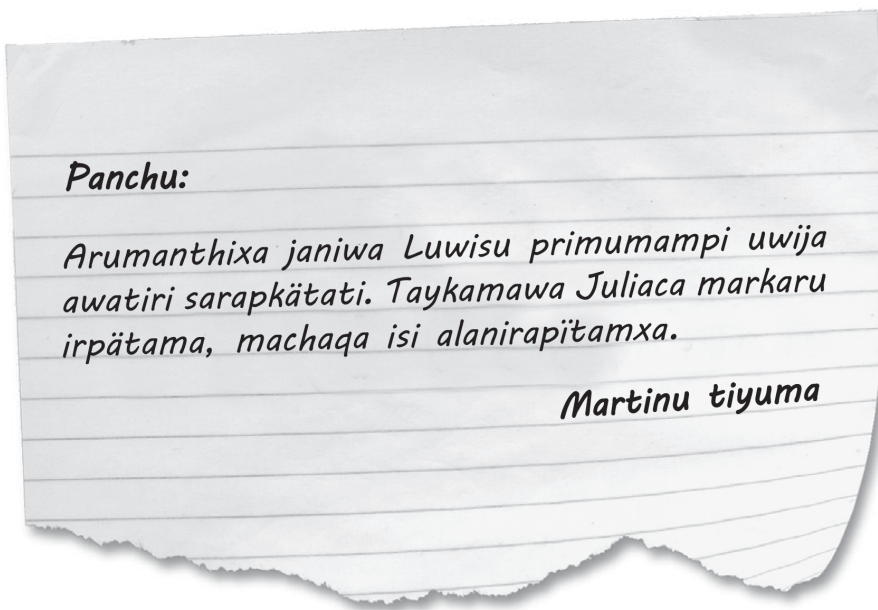 Panchu:
Arumanthixa janiwa Luwisu primumampi uwija
awatiri sarapkätati. Taykamawa Juliaca markaru
irpätama, machaqa isi alanirapïtamxa.
Martinu tiyuma